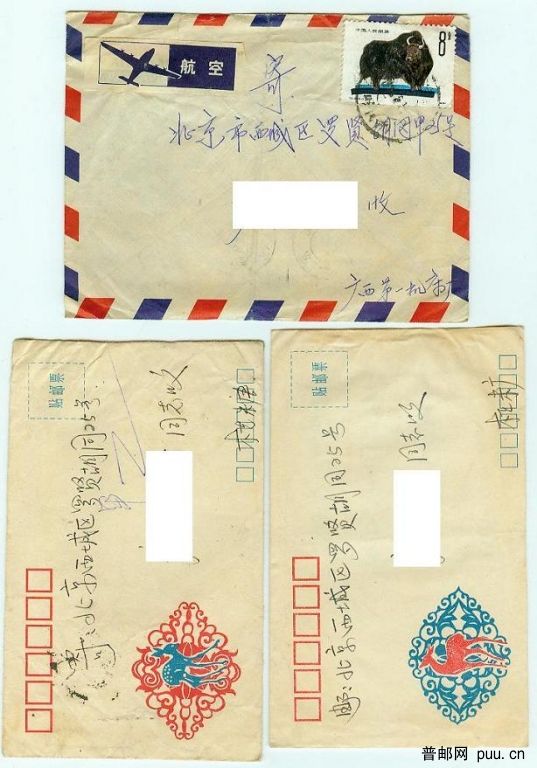 航空
中国人民邮政
8分
寄
北京市西城区罗贤胡同甲25号
收
广西第一机床厂
贴邮票处
同志收
寄:北京西城区罗贤胡同25号
贴邮票处
同志收
邮:北京西城区罗贤胡同25号
普邮网 puu.cn